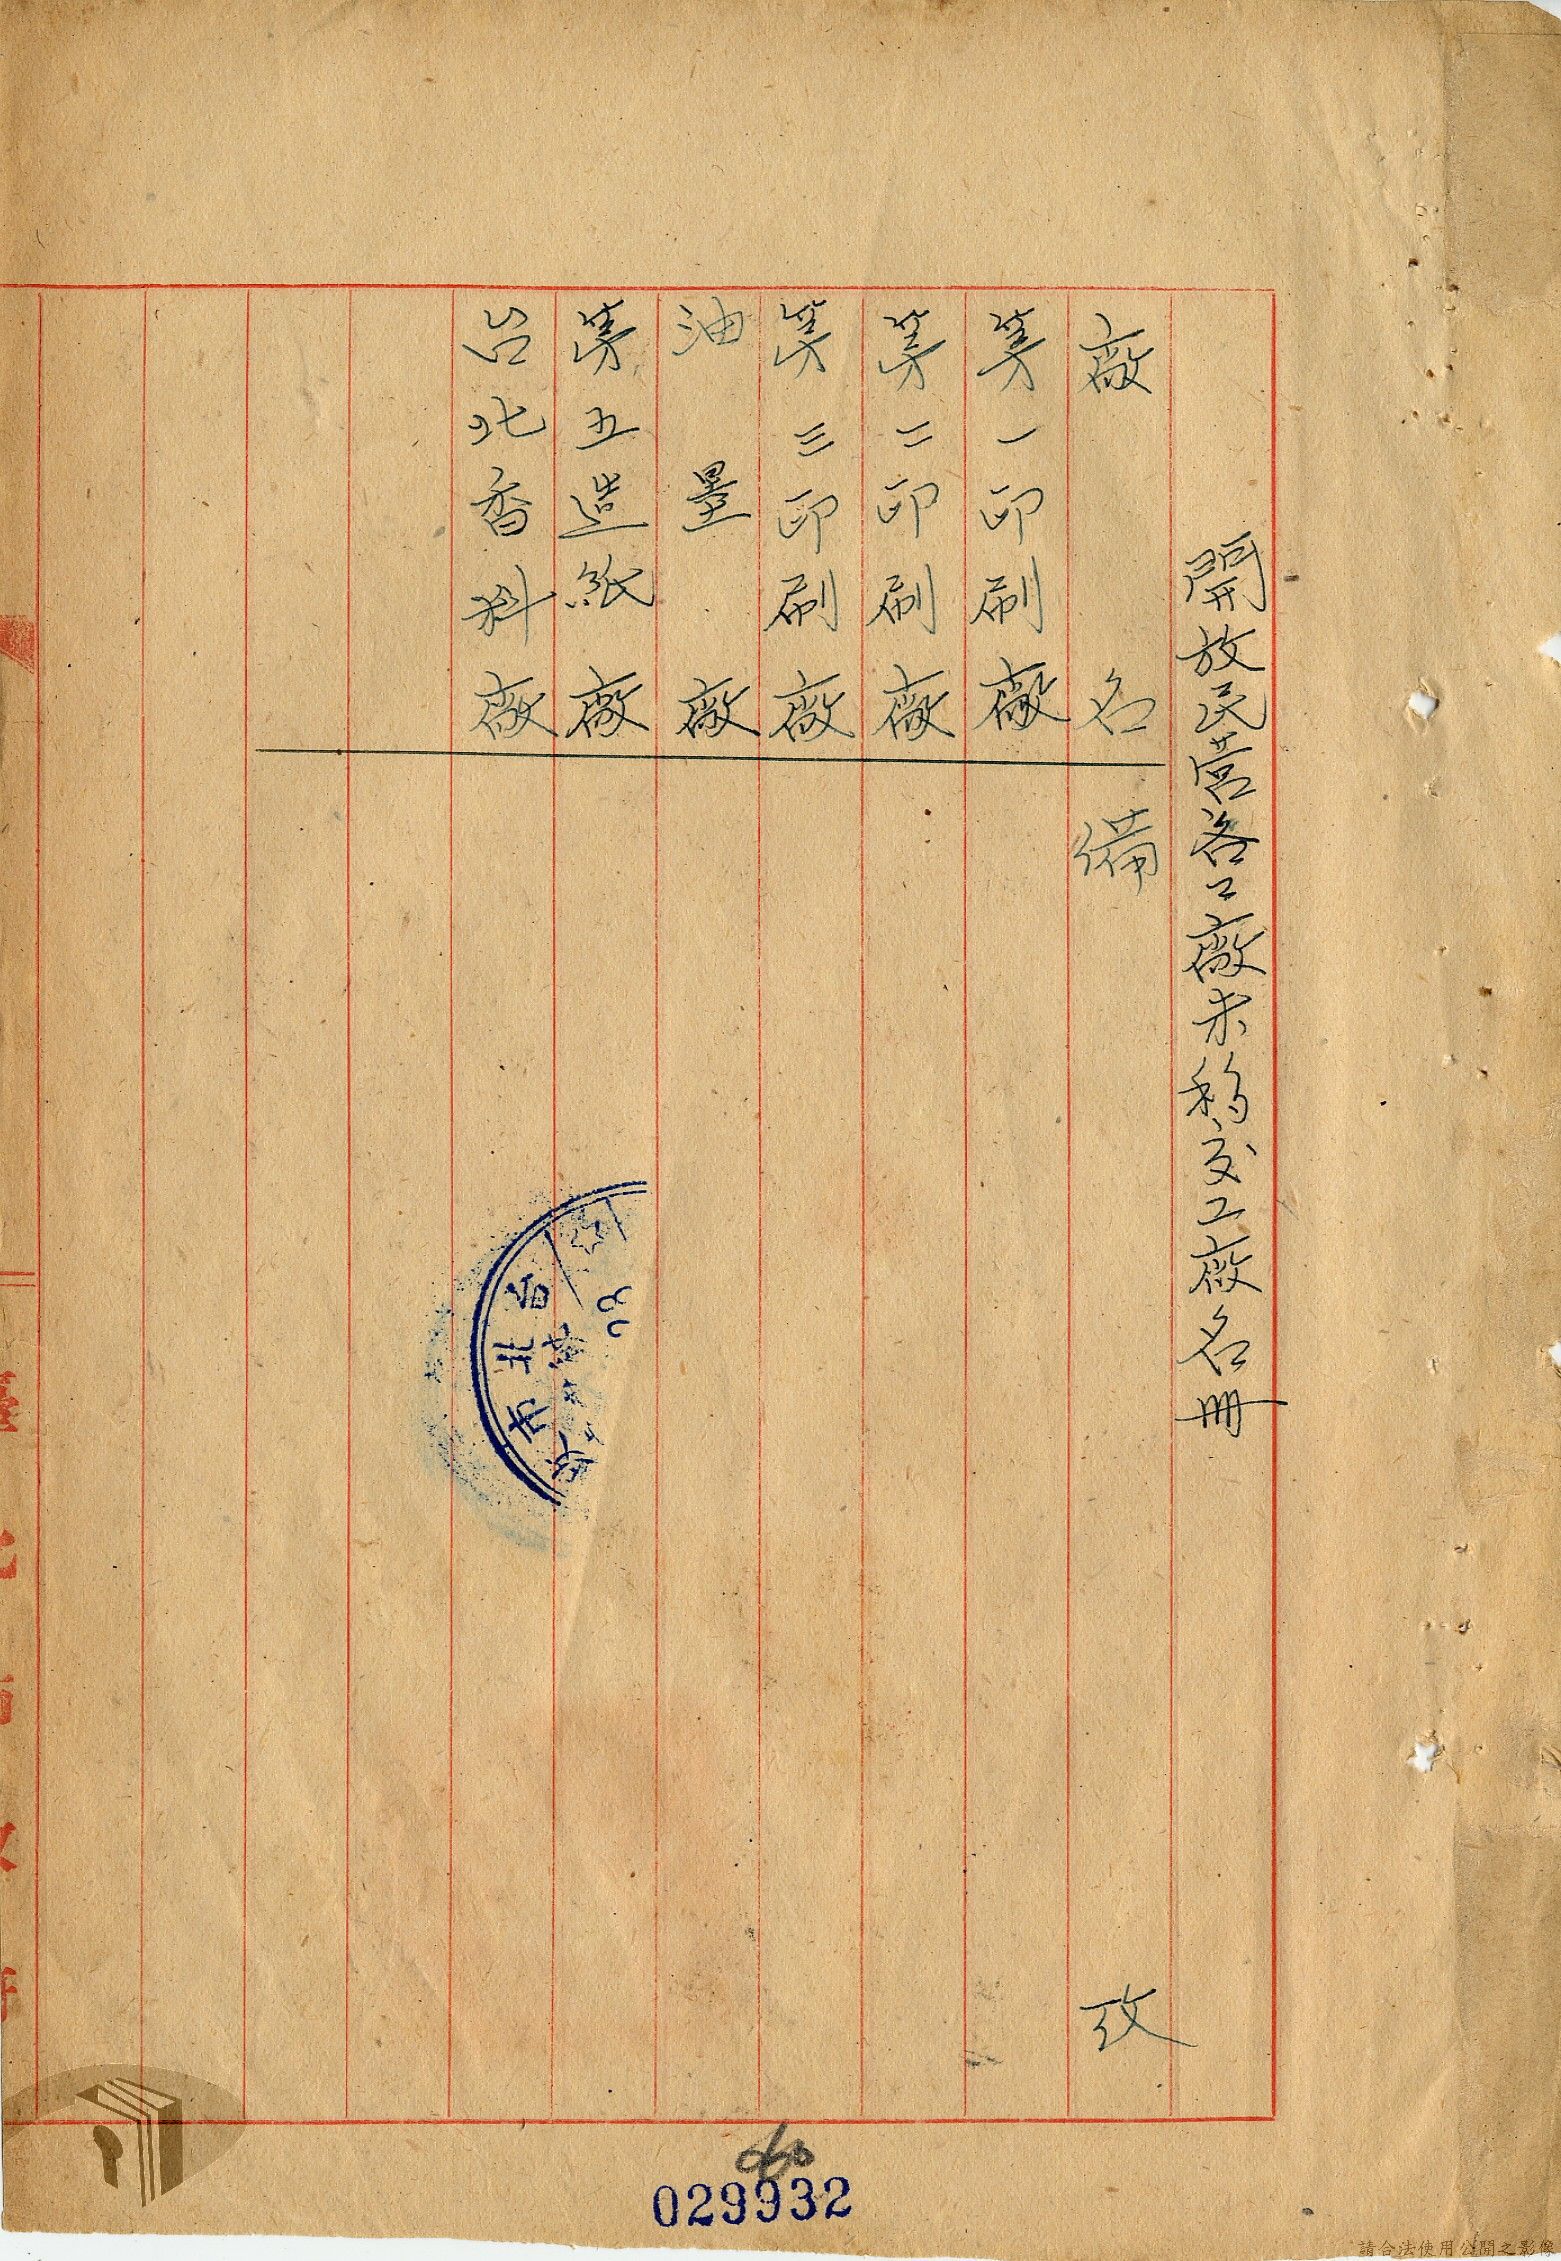 開放民营各工廠未移交工廠名冊
廠名 備攷
第一印刷廠
第二印刷廠
第三印刷廠
油墨廠
第五造紙廠
台北香料廠
台北市政
029932
請合法使用公開之影像